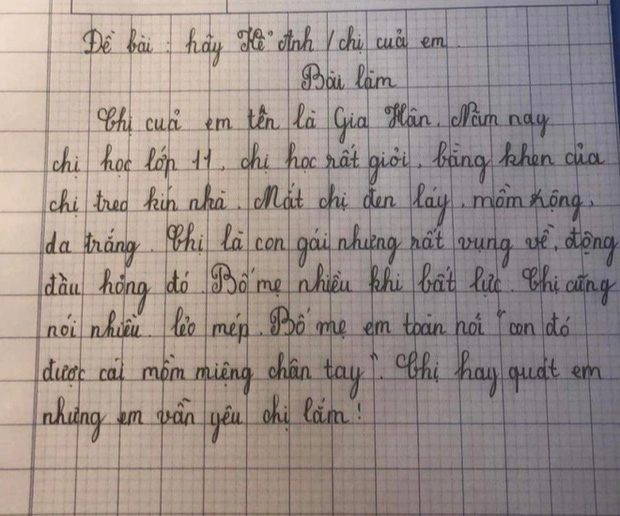 Đề bài : hãy Kể Anh / chị cuả em.
Bài làm
Chị cuả em tên là Gia Hân. Năm nay
chị học lớp 11, chị học rất giỏi, bằng khen của
chị treo kín nhà. Mắt chị đen láy, mồm rộng,
da trắng. Chị là con gái nhưng rất vụng về, động
đâu hỏng đó. Bố mẹ nhiều khi bất lực. Chị cũng
nói nhiều, lẻo mép. Bố mẹ em toàn nói "con đó
được cái mồm miệng chân tay". Chị hay quát em
nhưng em vẫn yêu chị lắm!